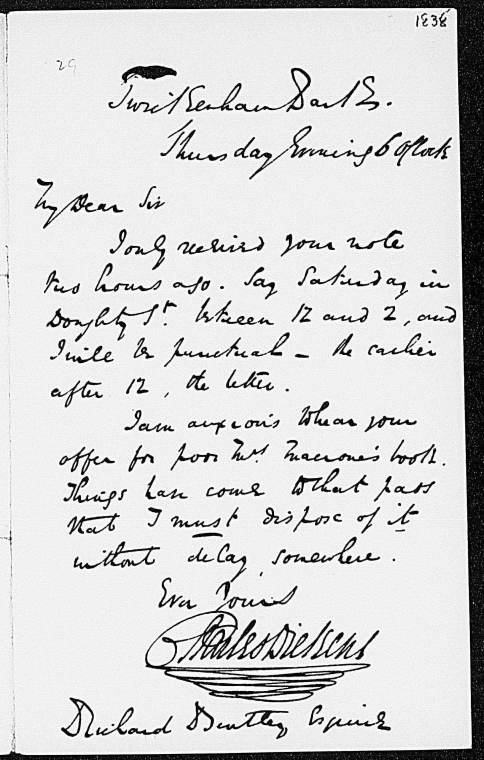 1838
29
Twickenham Park.
Thursday Evening 6 oClock
My Dear Sir
I only received your note
two hours ago. Say Saturday in
Doughty St. between 12 and 2, and
I will be punctual – the earlier
after 12, the better.
I am anxious to hear your
offer for poor Mrs Macrone's book.
Things have come to that pass
that I must dispose of it
without delay, somewhere.
Ever Yours
Charles Dickens
Richard Bentley Esquire